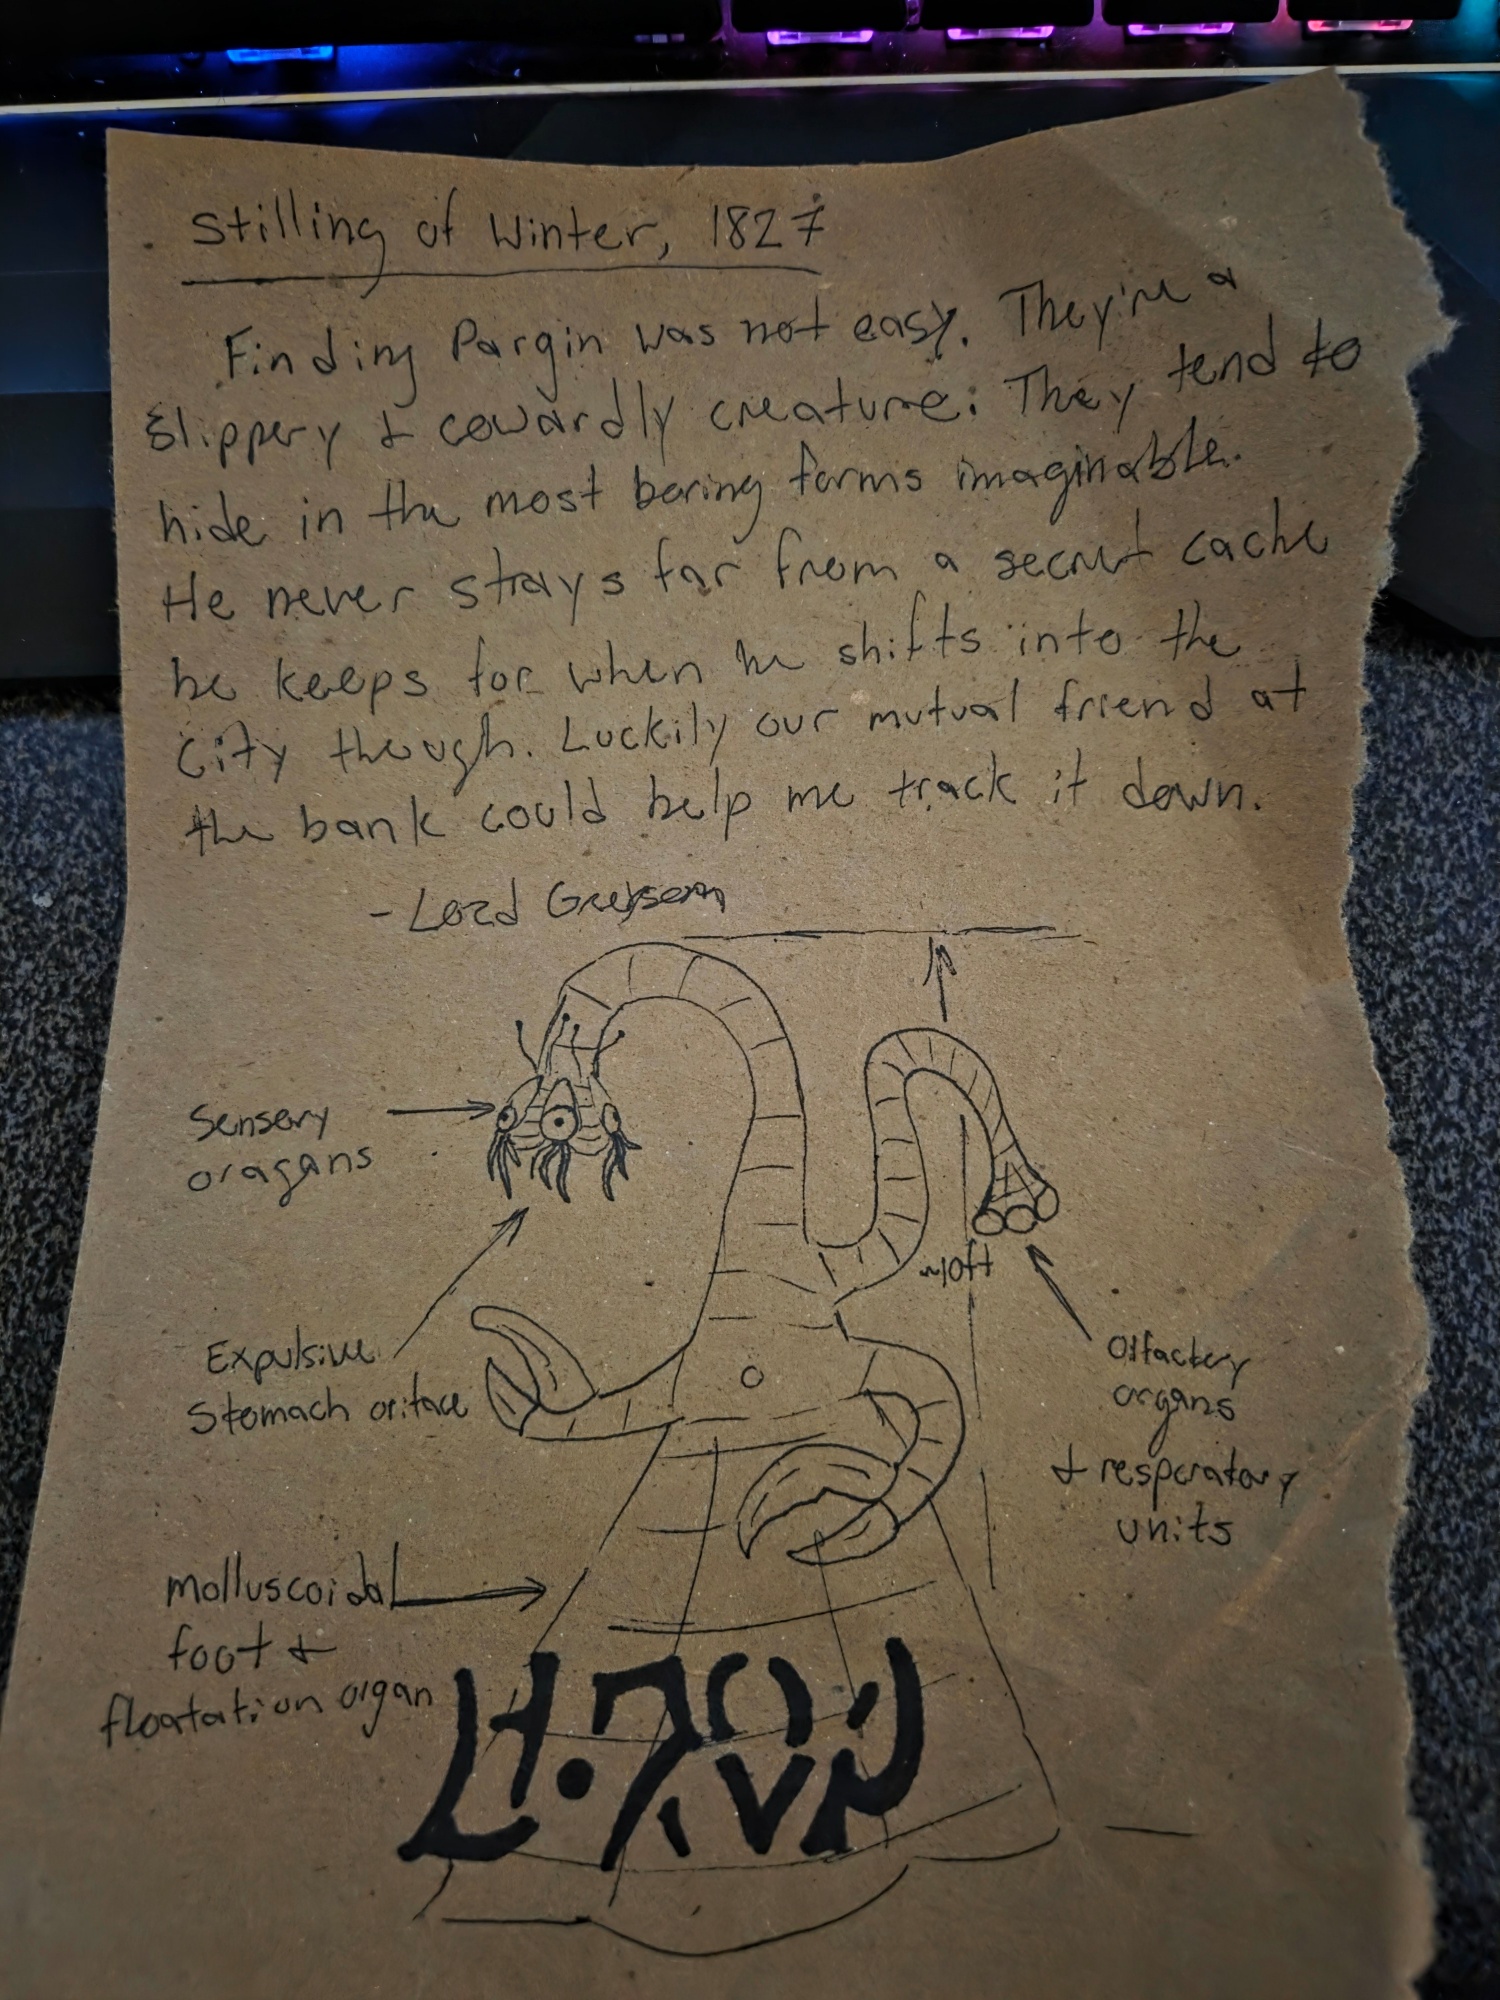 Stilling of Winter, 1827
Finding Pargin was not easy. They're a
slippery & cowardly creature. They tend to
hide in the most boring forms imaginable.
He never strays far from a secret cache
he keeps for when he shifts into the
city though. Luckily our mutual friend at
the bank could help me track it down.
- Lord
Sensery
oragans
Expulsive
Stomach oriface
~10ft
Olfactory
organs
& resperatory
units
Molluscoidal
foot &
floatation organ